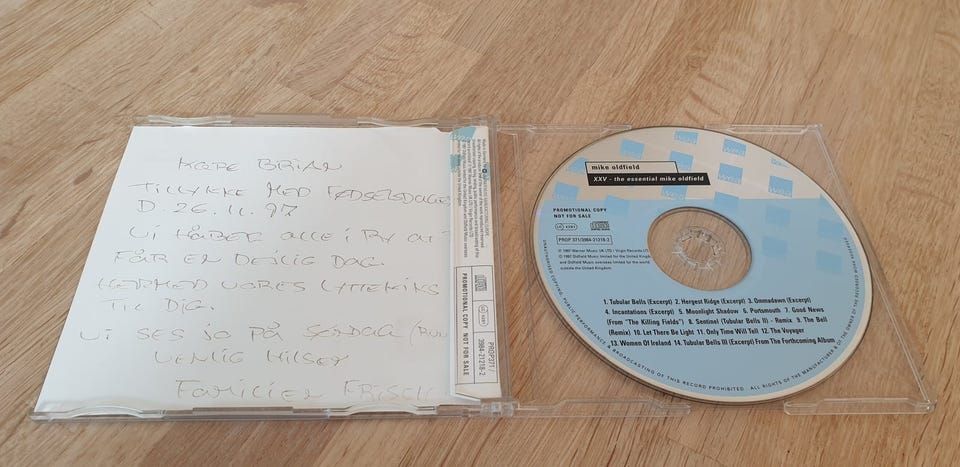 KÆRE BRIAN
TILLYKKE MED FØDSELSDAGEN
D. 26.11.97
VI HÅBER ALLE I RY AT
FÅR EN DEJLIG DAG.
HERMED VORES
TIL DIG.
VI SES JO PÅ SØNDAG
VENLIG HILSEN
FAMILIEN FRISCH
PROMOTIONAL COPY NOT FOR SALE
PROP371 /
3984-21218-2
mike oldfield
XXV - the essential mike oldfield
PROMOTIONAL COPY
NOT FOR SALE
LC 4281
PROP 371/3984-21218-2
℗ 1997 Warner Music UK LTD / Virgin Records LTD
© 1997 Oldfield Music limited for the United Kingdom
and Oldfield Music overseas limited for the world
outside the United Kingdom.
1. Tubular Bells (Excerpt) 2. Hergest Ridge (Excerpt) 3. Ommadawn (Excerpt)
4. Incantations (Excerpt) 5. Moonlight Shadow 6. Portsmouth 7. Good News
(From "The Killing Fields") 8. Sentinel (Tubular Bells II) - Remix 9. The Bell
(Remix) 10. Let There Be Light 11. Only Time Will Tell 12. The Voyager
13. Women Of Ireland 14. Tubular Bells III (Excerpt) From The Forthcoming Album
UNAUTHORISED COPYING, PUBLIC PERFORMANCE & BROADCASTING OF THIS RECORD PROHIBITED. ALL RIGHTS OF THE MANUFACTURER & OF THE OWNER OF THE